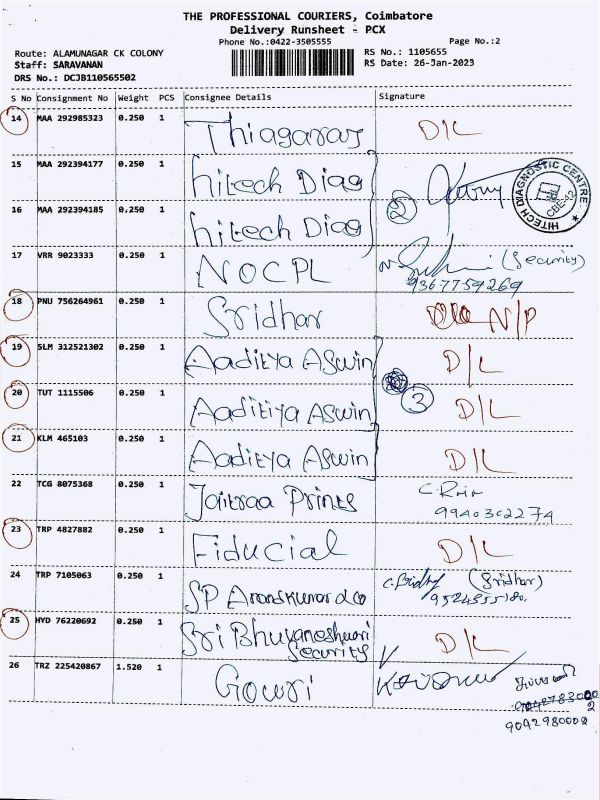 THE PROFESSIONAL COURIERS, Coimbatore
Delivery Runsheet - PCX
Phone No.:0422-3505555 Page No.:2
Route: ALAMUNAGAR CK COLONY RS No.: 1105655
Staff: SARAVANAN RS Date: 26-Jan-2023
DRS No.: DCJB110565502
S No Consignment No Weight PCS Consignee Details Signature
14 MAA 292985323 0.250 1 Thiagaraj D/L
15 MAA 292394177 0.250 1 hitech Diag
HITECH DIAGNOSTIC CENTRE CBE-12
2
16 MAA 292394185 0.250 1 hitech Diag
17 VRR 9023333 0.250 1 NOCPL (Security)
9367759269
18 PNU 756264961 0.250 1 Sridhar N/P
19 SLM 312521302 0.250 1 Aaditya Aswin D/L
3
20 TUT 1115506 0.250 1 Aaditiya Aswin D/L
21 KLM 465103 0.250 1 Aaditya Aswin D/L
22 TCG 8075368 0.250 1 Jaitraa Prints
9940302274
23 TRP 4827882 0.250 1 Fiducial D/L
24 TRP 7105063 0.250 1 SP Anandkumar & co (Sridhar)
25 HYD 76220692 0.250 1 Sri Bhuvaneshwari
Security D/L
26 TRZ 225420867 1.520 1 Gowri
9042980002